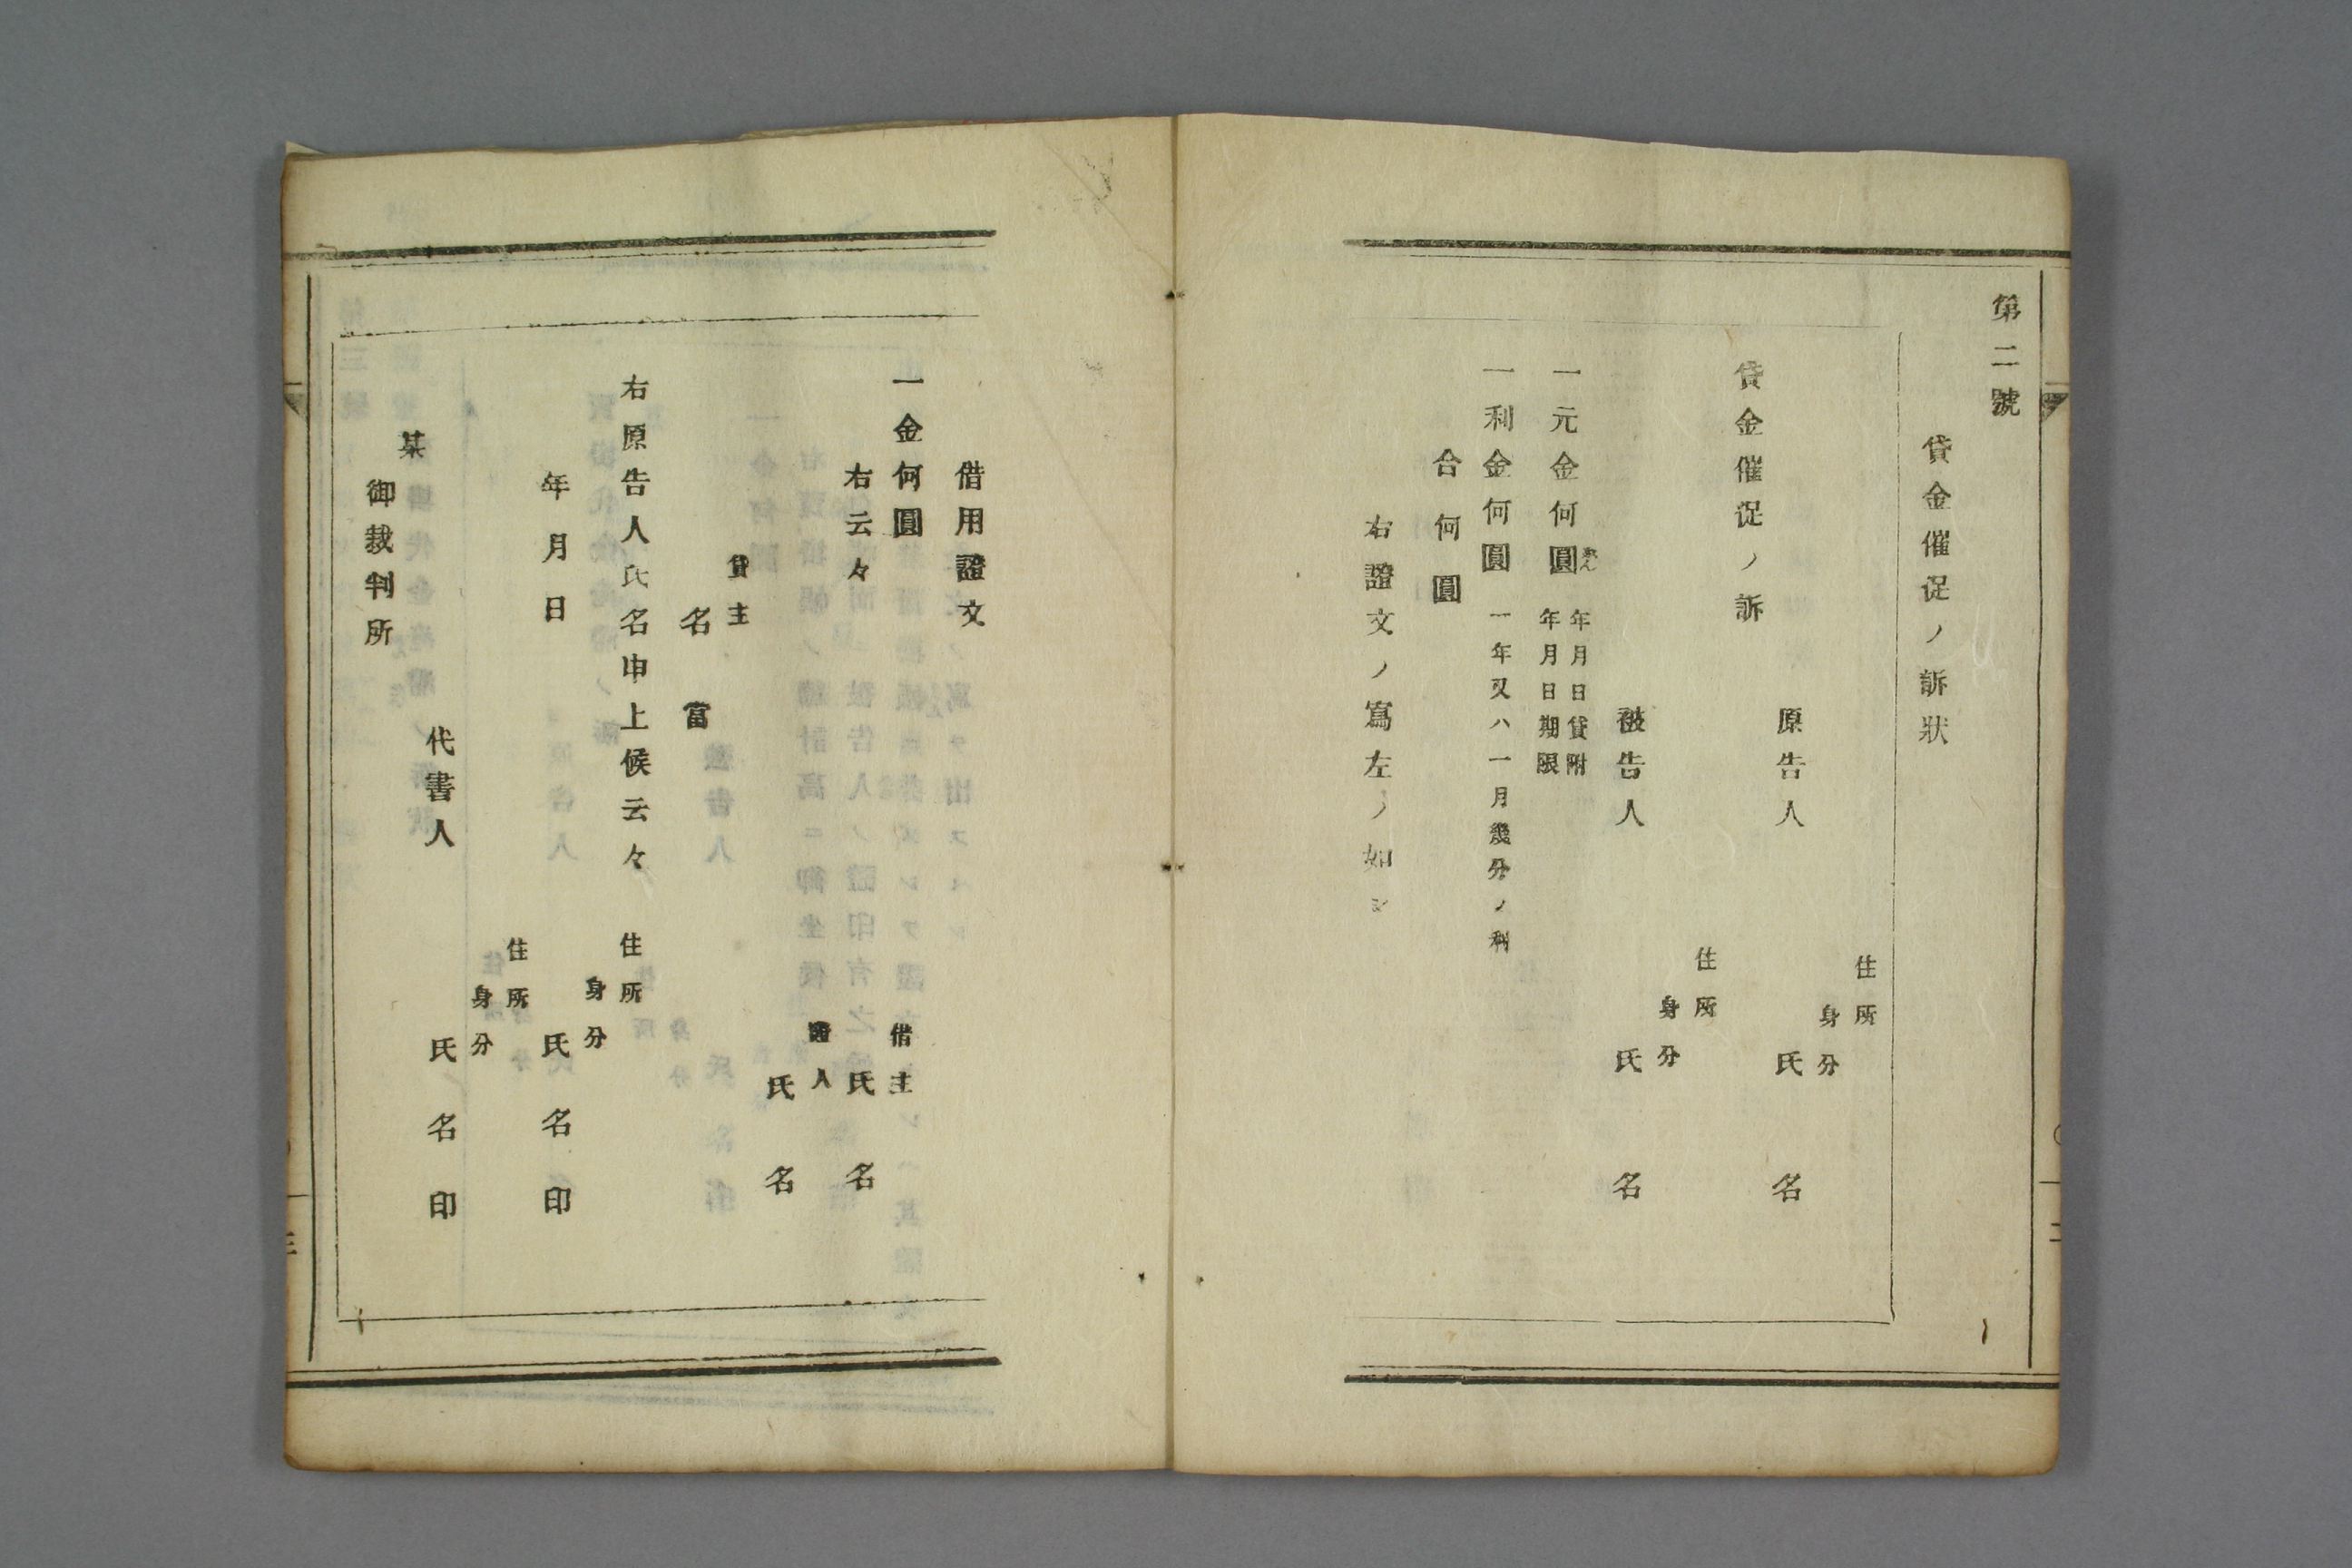 第二號
貸金催促ノ訴狀
住所
身分
原告人 氏名
貸金催促ノ訴
住所
身分
被告人 氏名
一元金何圓 年月日貸附
年月日期限
一利金何圓 一年又ハ一月幾分ノ利
合何圓
右證文ノ寫左ノ如シ
借用證文
一金何圓
借主
右云々 氏名
證人
氏名
貸主
名當
右原告人氏名申上候云々
住所
身分
年月日 氏名印
住所
身分
代書人 氏名印
某
御裁判所